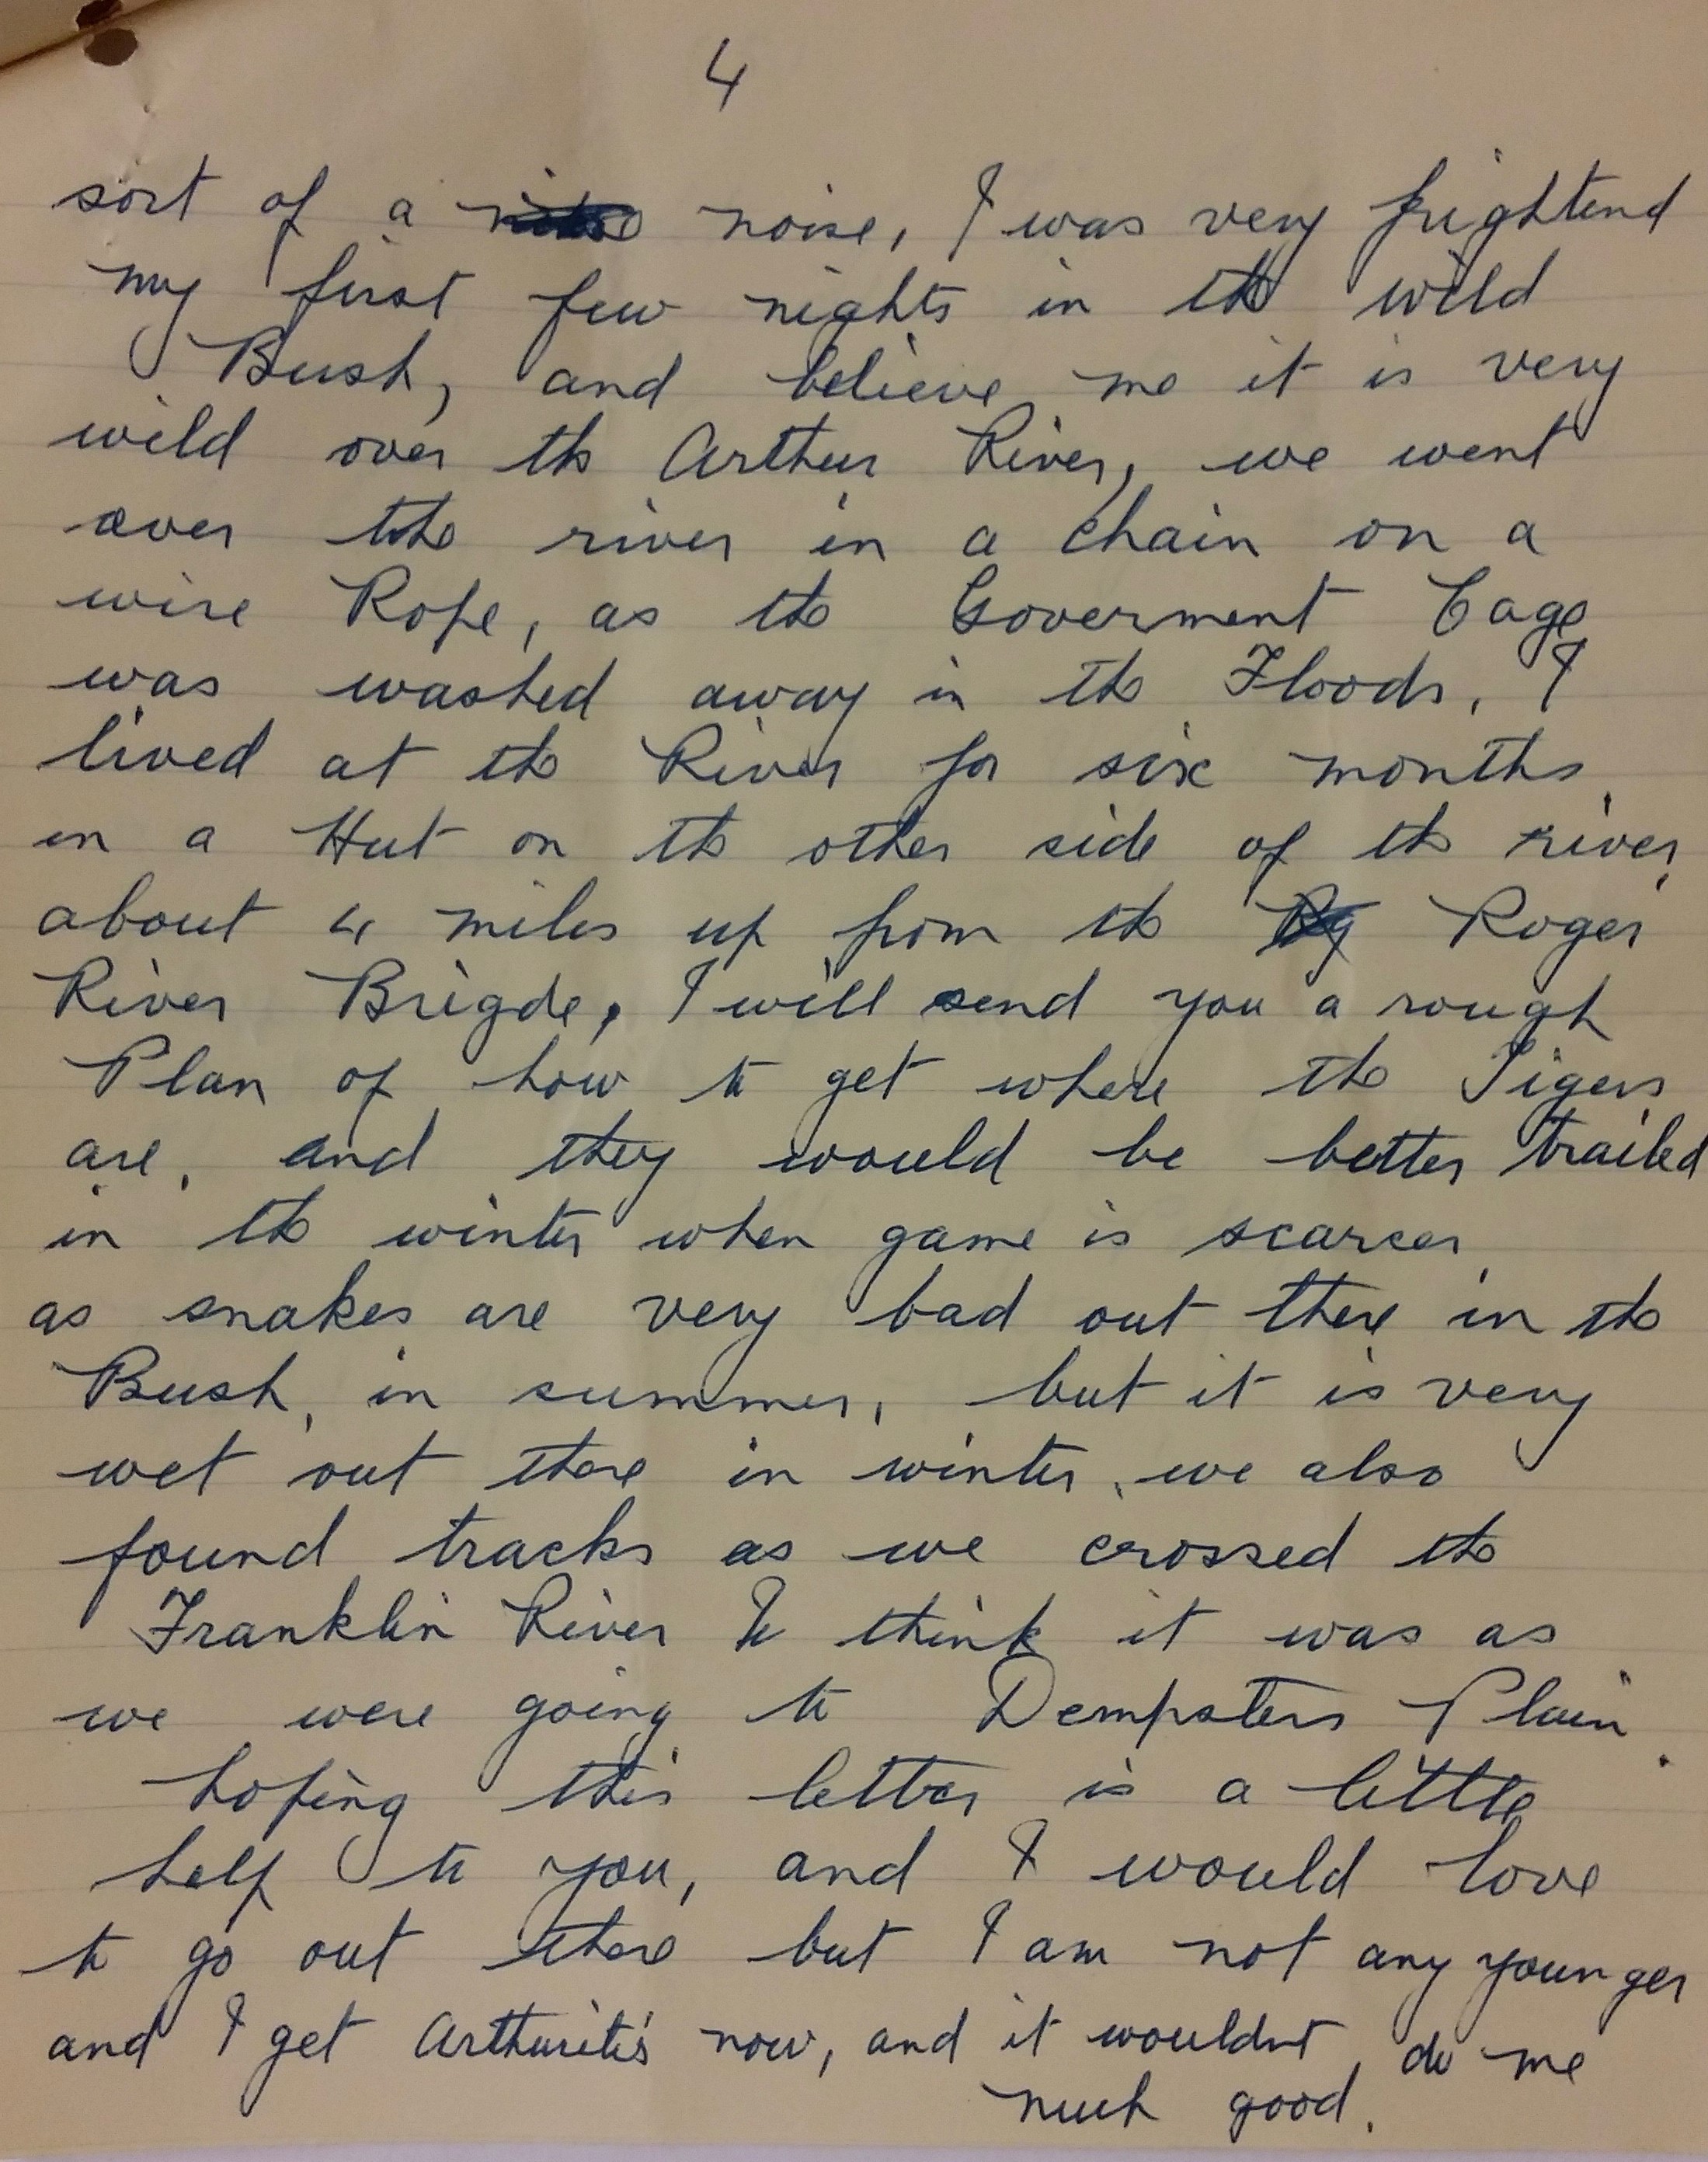 4
sort of a noise, I was very frightend
my first few nights in the wild
Bush, and believe me it is very
wild over the Arthur River, we went
over the river in a chain on a
wire Rope, as the Goverment Cage
was washed away in the Floods, I
lived at the River for six months
in a Hut on the other side of the river,
about 4 miles up from the Roger
River Brigde, I will send you a rough
Plan of how to get where the Tigers
are, and they would be better trailed
in the winter when game is scarcer,
as snakes are very bad out there in the
Bush, in summer, but it is very
wet out there in winter, we also
found tracks as we crossed the
Franklin River I think it was as
we were going to Dempsters Plain.
hoping this letter is a little
help to you, and I would love
to go out there but I am not any younger
and I get Arthuritis now, and it wouldnt do me
much good.